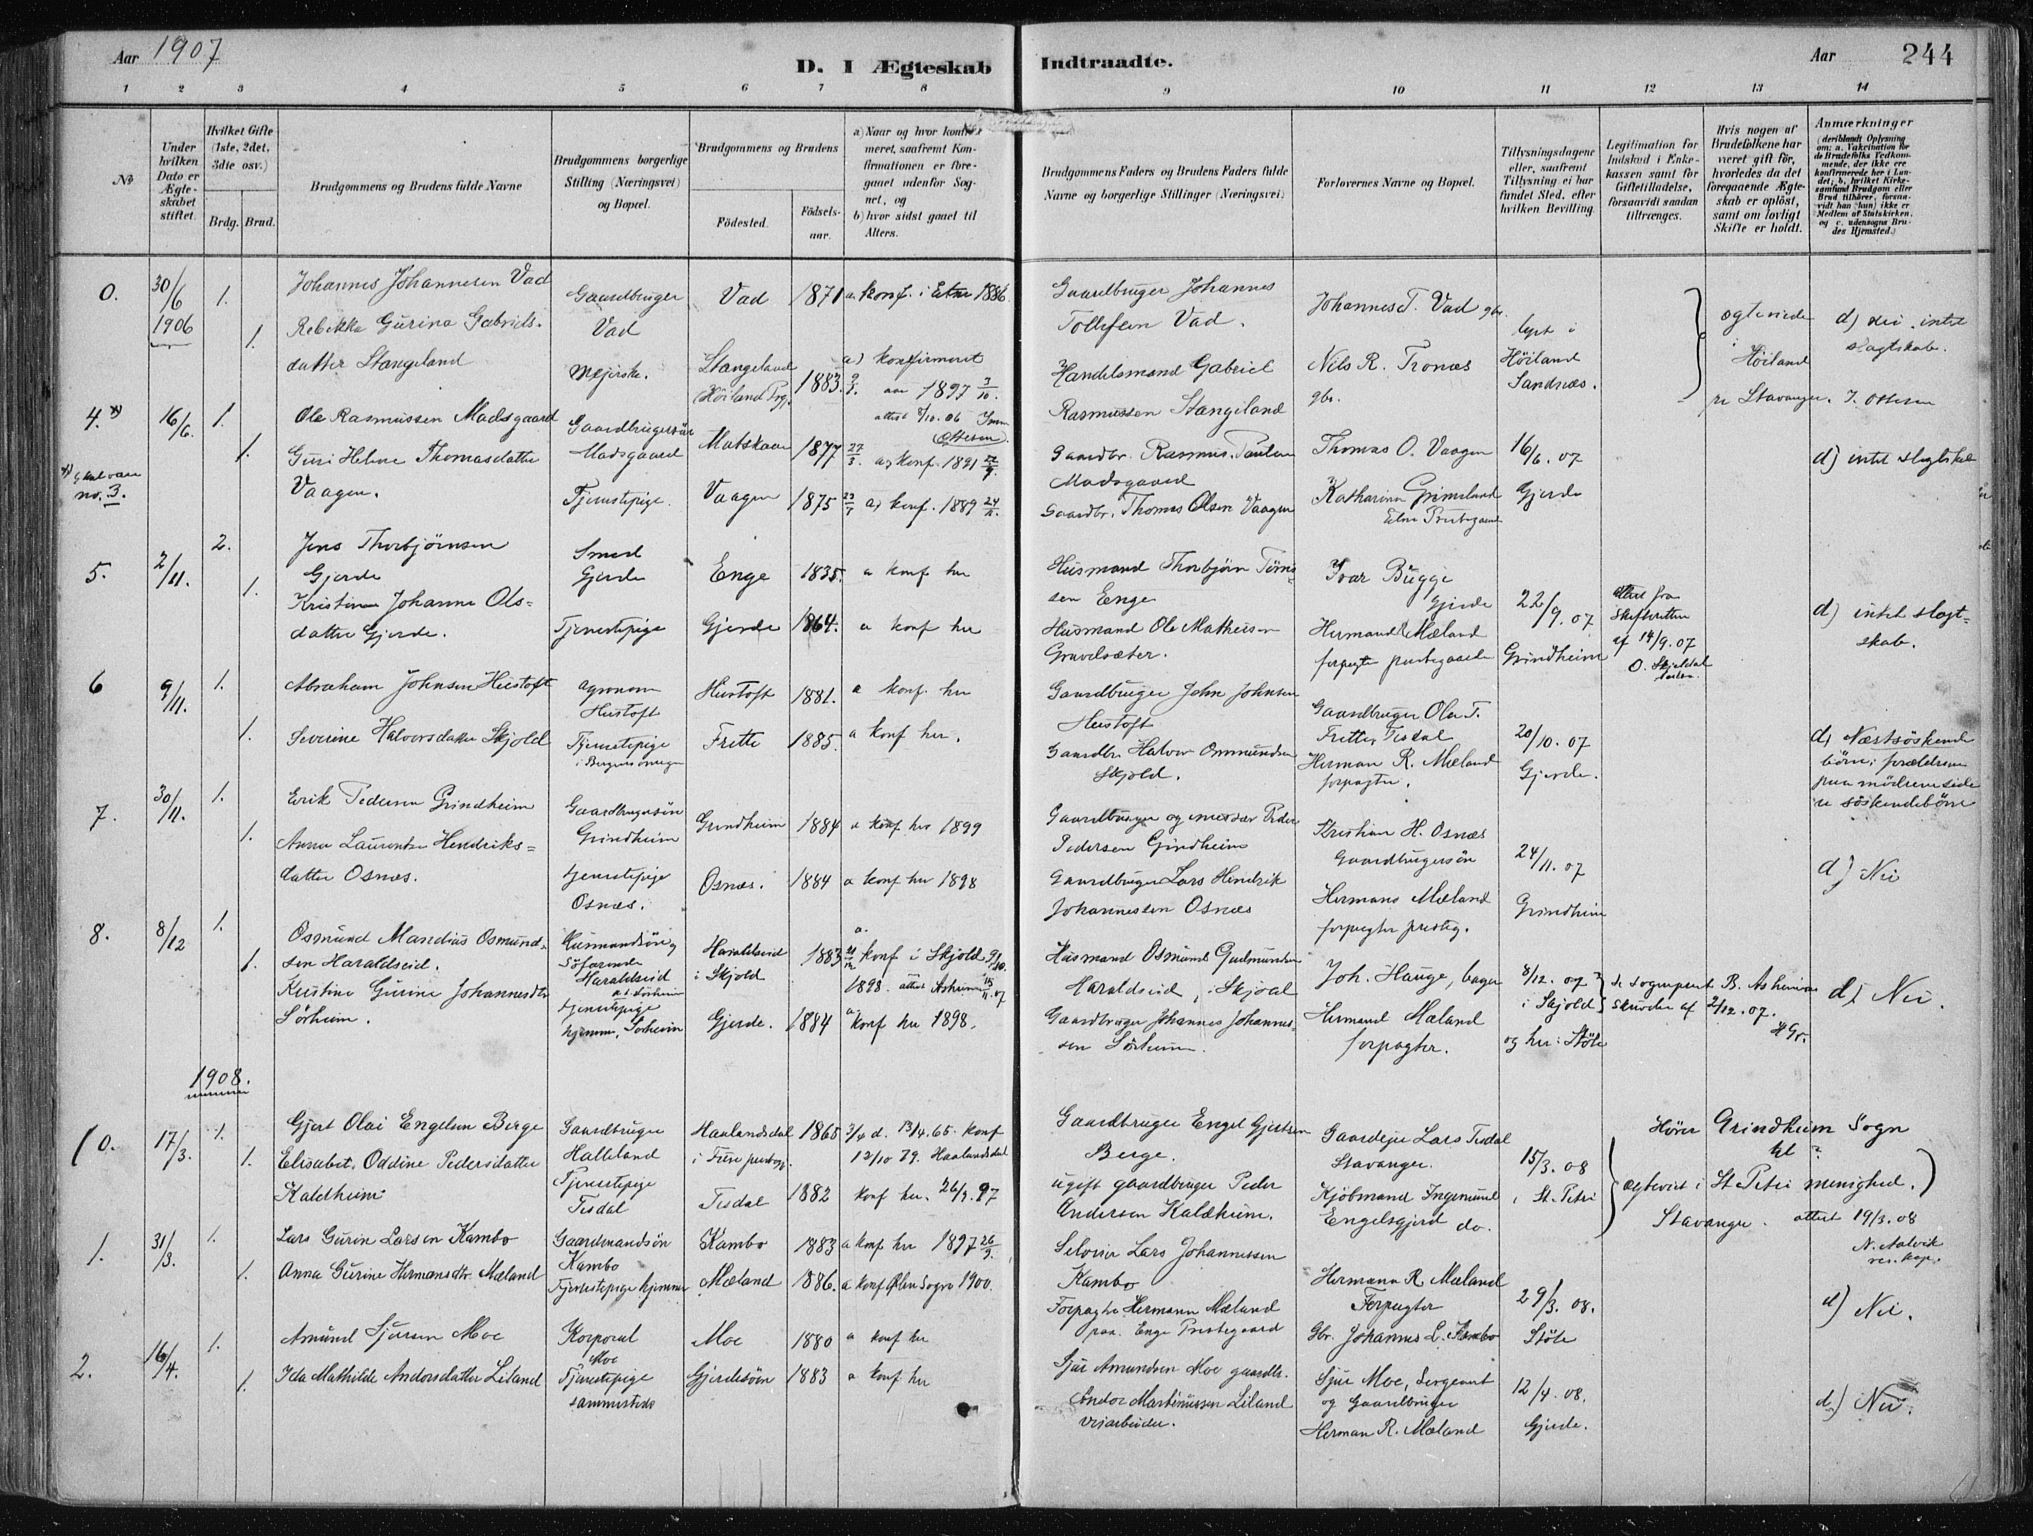 Aar 1907
D. I Ægteskab Indtraadte.
Aar 244
1 2 3 4 5 6 7 8 9 10 11 12 13 14
No
Under hvilken Dato er Ægteskabet stiftet.
Hvilket Gifte (1ste, 2det, 3dte osv.)
Brdg. Brud.
Brudgommens og Brudens fulde Navne
Brudgommens borgerlige Stilling (Næringsvei) og Bopæl.
Brudgommens og Brudens
Fødested. Fødsels-aar.
a) Naar og hvor konfirmeret, saafremt Konfirmationen er foregaaet udenfor Sognet, og
b) hvor sidst gaaet til Alters.
Brudgommens Faders og Brudens Faders fulde Navne og borgerlige Stillinger (Næringsvei)
Forlovernes Navne og Bopæl.
Tillysningsdagene eller, saafremt Tillysning ei har fundet Sted, efter hvilken Bevilling.
Legitimation for Indskud i Enkekassen samt for Giftetilladelse, forsaavidt saadan tiltrænges.
Hvis nogen af Brudefolkene har været gift før, hvorledes da det foregaaende Ægteskab er opløst, samt om lovligt Skifte er holdt.
Anmærkninger
(deriblandt Oplysning om: a. Vakcination for de Brudefolks Vedkommende, der ikke ere konfirmerede her i Landet; b. hvilket Kirkesamfund Brudgom eller Brud tilhører, forsaavidt han (hun) ikke er Medlem af Statskirken, og c. udensogns Brudes Hjemsted.)
0. 30/6 1906 1. Johannes Johannesen Vad Gaardbruger Vad Vad 1871 a konf. i Etne 1886
Gaardbruger Johannes Tollefsen Vad. Johannes T. Vad gbr. lyst i Høiland Sandnes.
1. Rebekka Gurina Gabrielsdatter Stangeland Mejerske. Stangeland Høiland Prg. 1883 9/3. a) konfirmeret 1897 3/10.
attest 8/10.06
Handelsmand Gabriel Rasmussen Stangeland Nils R. Tronæs gbr.
ægteviede i Høiland pr Stavanger. J. Ottesen
d) nei. intet slagtskab.
4. x) 16/6. 1. Ole Rasmussen Madsgaard Gaardbrugersøn Madsgaard Matskaar 1877 27/3 a) konf. 1891 27/9.
Gaardbr. Rasmus Paulsen Madsgaard Thomas O. Vaagen 16/6.07 Gjerde
x) skal være no. 3.
1. Guri Helene Thomasdatter Vaagen. Tjenestepige. Vaagen 1875 a) konf. 1889
Gaardbr. Thomas Olsen Vaagen Katharina Grimsland Etne Prestegaard
d) intet slegtskab
5. 2/11. 2. Jens Thorbjørnsen Gjerde Smed Gjerde Enge 1835. a konf her
Husmand Thorbjørn Enge Ivar Bugge Gjerde 22/9.07 Grindheim
attest fra Skifteretten af 14/9.07
1. Kristine Johanne Olsdatter Gjerde. Tjenestepige Gjerde 1864. a konf her
Husmand Ole Mathiesen Gravelsæter. Hermand R Mæland forpagter prestegaard
d) intet slægtskab.
6 9/11. 1. Abraham Johnsen Hustoft agronom Hustoft Hustoft 1881. a konf. her
Gaardbruger John Johnsen Hustoft Gaardbruger Ola T. Frette, Tisdal 20/10.07 Gjerde.
1. Severine Halvorsdatter Skjold Tjenestepige Frette 1885. a konf her.
Gaardbr Halvor Ommundsen Skjold. Herman R. Mæland forpagter.
d, Næstsøskendebørn; forældrene paa mødrene side re søskendebørn
7. 30/11. 1. Erik Pedersen Grindheim Gaardbrugersøn Grindheim Grindheim 1884 a konf her 1899
Gaardbruger og Peder Pedersen Grindheim Kristian H. Osnæs Gaardbrugersøn 24/11.07 Grindheim
1. Anna Laurentze Hendriksdatter Osnæs. tjenestepige Osnæs. Osnæs. 1884 a konf her 1898
Gaardbruger Lars Hendrik Johannessen Osnæs Hermans Mæland forpagter presteg.
d) Nei
8. 8/12 1. Osmund Mandius Osmundsen Haraldseid. Husmandsøn og Søfarende Haraldseid Haraldseid i Skjold 1883 a. konf i Skjold 9/10. 1898. attest Asheim 15/11.07
Husmand Osmund Gudmundsen Haraldseid, i Skjold Joh. Hauge, bager 8/12.07 i Skjold og her: Støle
1. Kristine Gurine Johannesdtr Sørheim. tjenestepige hjemme, Sørheim Gjerde. 1884 a konf her 1898.
Gaardbruger Johannes Johannessen Sørheim. Hermand Mæland forpagter.
se Sogneprest B. Asheims skrivelse af 2/12.07.
d) Nei.
1908.
0. 17/3. 1. Gjert Olai Engelsen Berge Gaardbruger Halleland Haalandsdal i Fuse prestegj. 1865 3/4 d. 13/4.65. konf 12/10 79. Haalandsdal
Gaardbruger Engel Gjertsen Berge. Gaardejer Lars Tisdal Stavanger. 15/3.08 i St. Petri
1. Elisabet Oddine Pedersdatter Kaldheim Tjenestepige Tisdal Tisdal 1882 konf her. 26/9.97
ugift gaardbruger Peder Andersen Kaldheim. Kjøbmand Ingemund Engelsgjerd do.
Hører Grindheim Sogn til ?
ægteviet i St Petri menighed.) Stavanger. attest 19/3.08 N. Aalvik res. kap.
1. 31/3. 1. Lars Gurin Larsen Kambo Gaardmandsøn Kambo Kambo 1883 a konf her 1897 26/9.
Selveier Lars Johannessen Kambo Hermann R. Mæland Forpagter 29/3.08. Støle
1. Anna Gurine Hermansdtr. Mæland Tjenestepige hjemme Mæland 1886. a konf Ølen Sogn 1900.
Forpagter Hermann Mæland paa Enge Prestegaard Gbr. Johannes L. Kambo
d) Nei.
2. 16/4. 1. Amund Sjursen Moe Korporal Moe Moe 1880 a konf her
Sjur Amundsen Moe gaardbr. Sjur Moe, Sergeant og Gaardbruger 12/4.08. Gjerde.
1. Ida Mathilde Andorsdatter Liland Tjenestepige sammesteds 1883 a konf her
Andor Martinussen Liland veiarbeider. Herman R. Mæland
d) Nei.